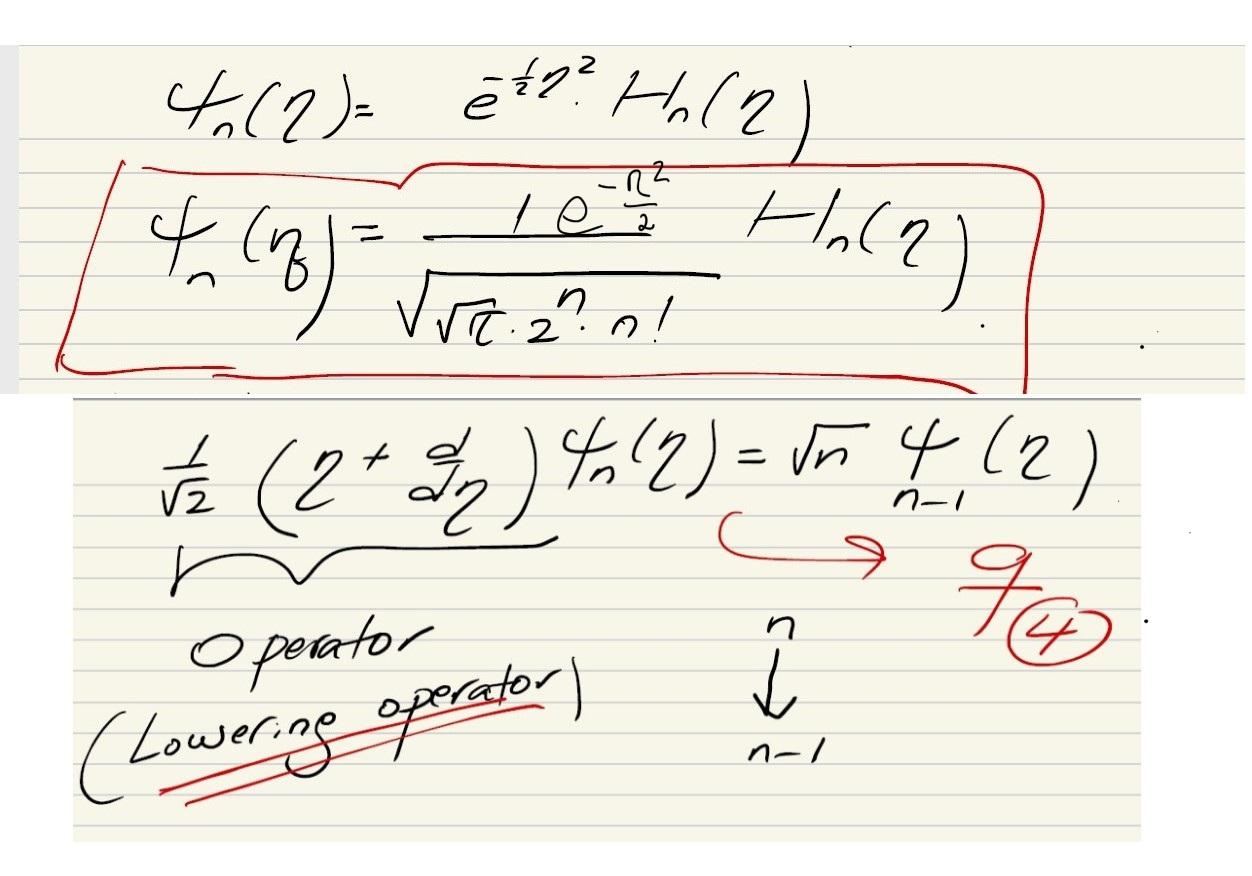 Ψn(η) = e^{-½η²} Hn(η)
Ψn(η) = 1 e^{-η²/2} / √(√π · 2^n · n!) Hn(η)
1/√2 (η + d/dη) Ψn(η) = √n Ψn-1(η)
Operator
(Lowering operator)
n
↓
n-1